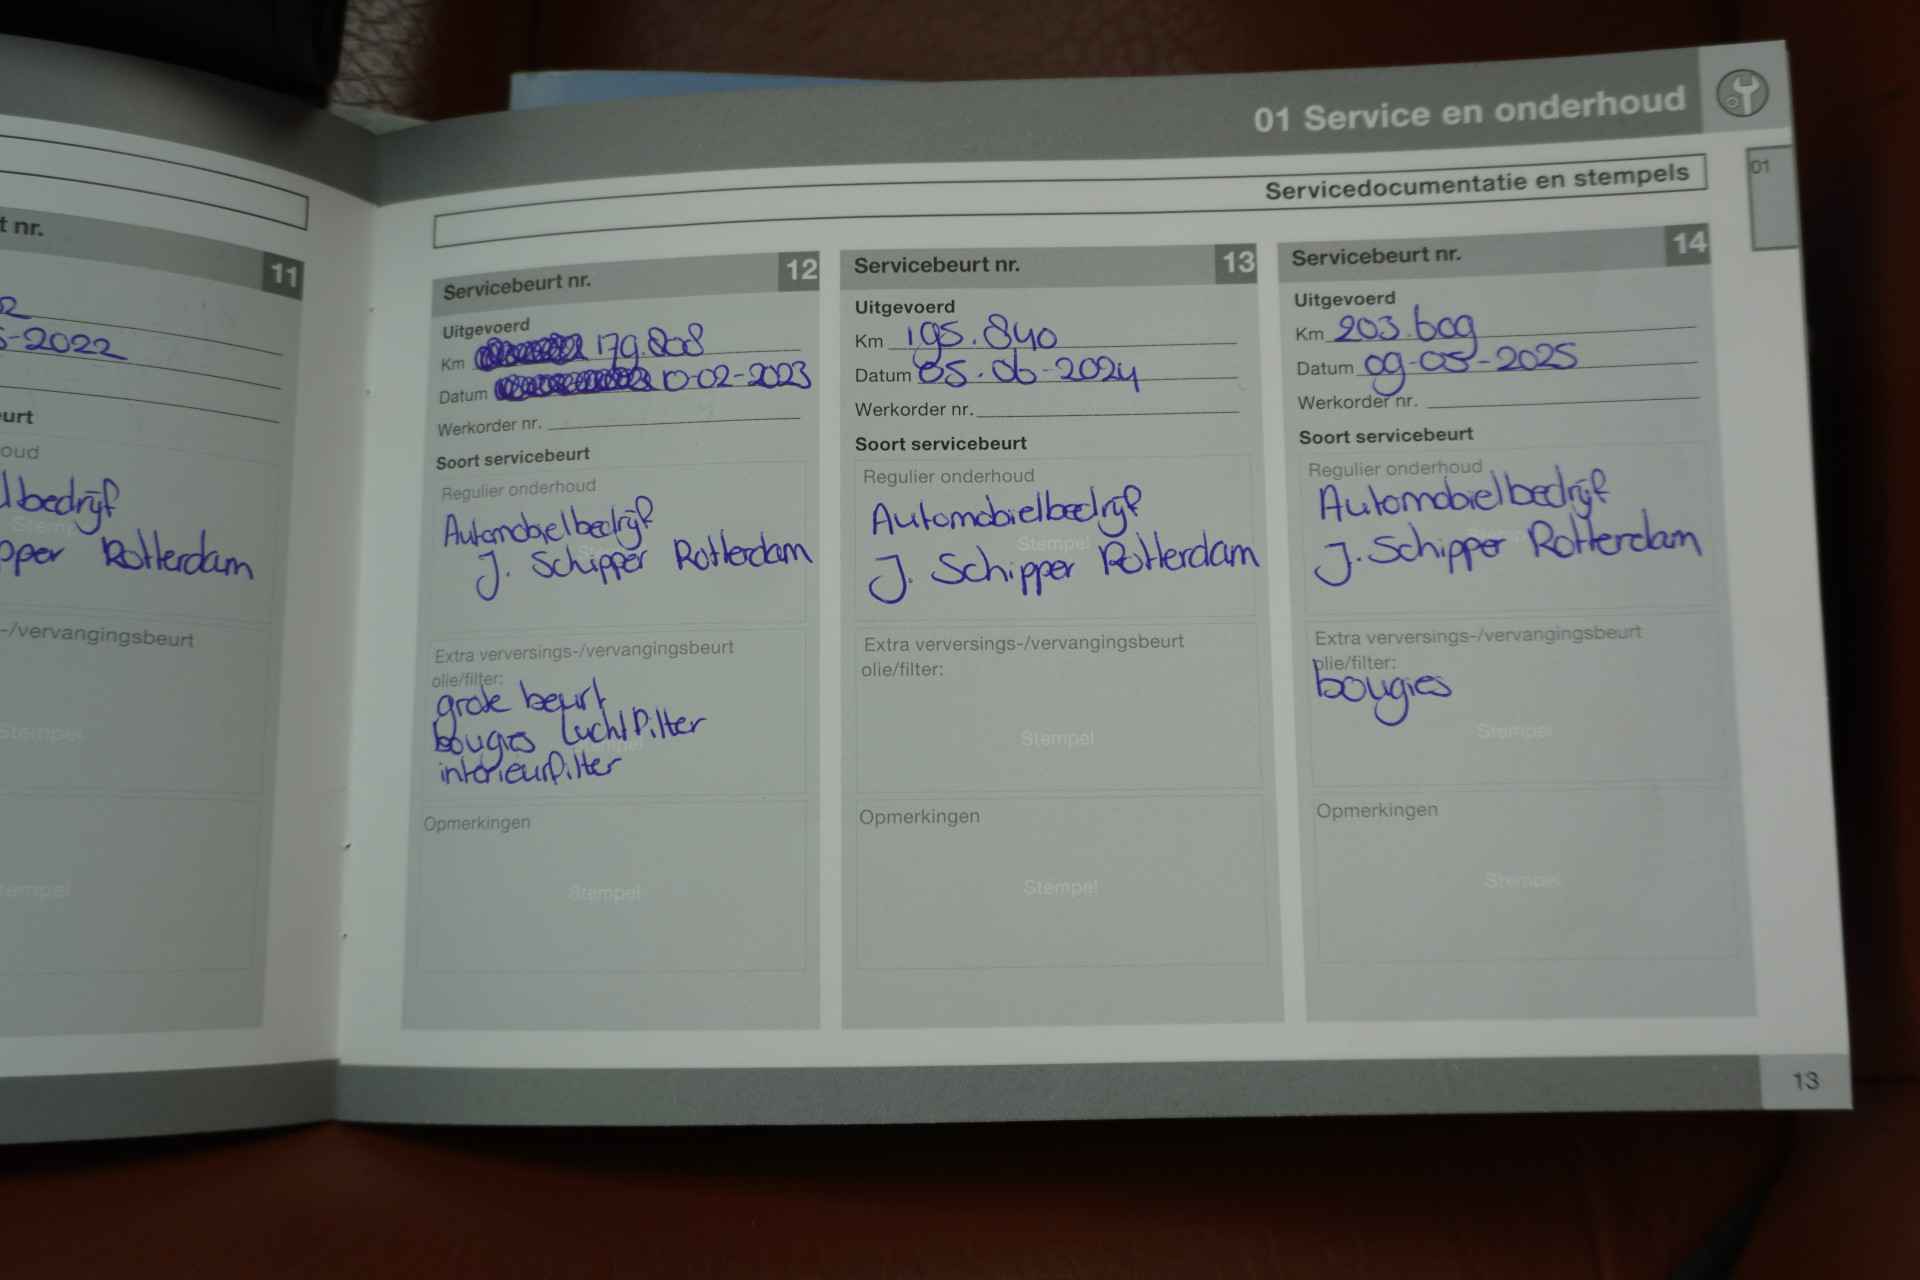 01 Service en onderhoud
01
Servicedocumentatie en stempels
t nr. 11
-2022
urt
oud
lbedrijf
Stempel
pper Rotterdam
-/vervangingsbeurt
Stempel
Stempel
Servicebeurt nr. 12
Uitgevoerd
Km 179.808
Datum 10-02-2023
Werkorder nr.
Soort servicebeurt
Regulier onderhoud
Automobielbedrijf
J. Schipper Rotterdam
Extra verversings-/vervangingsbeurt
olie/filter:
grote beurt
bougies luchtfilter
interieurfilter
Opmerkingen
Stempel
Servicebeurt nr. 13
Uitgevoerd
Km 195.840
Datum 05.06-2024
Werkorder nr.
Soort servicebeurt
Regulier onderhoud
Automobielbedrijf
Stempel
J. Schipper Rotterdam
Extra verversings-/vervangingsbeurt
olie/filter:
Stempel
Opmerkingen
Stempel
Servicebeurt nr. 14
Uitgevoerd
Km 203.609
Datum 09-05-2025
Werkorder nr.
Soort servicebeurt
Regulier onderhoud
Automobielbedrijf
J. Schipper Rotterdam
Extra verversings-/vervangingsbeurt
olie/filter:
bougies
Stempel
Opmerkingen
Stempel
13